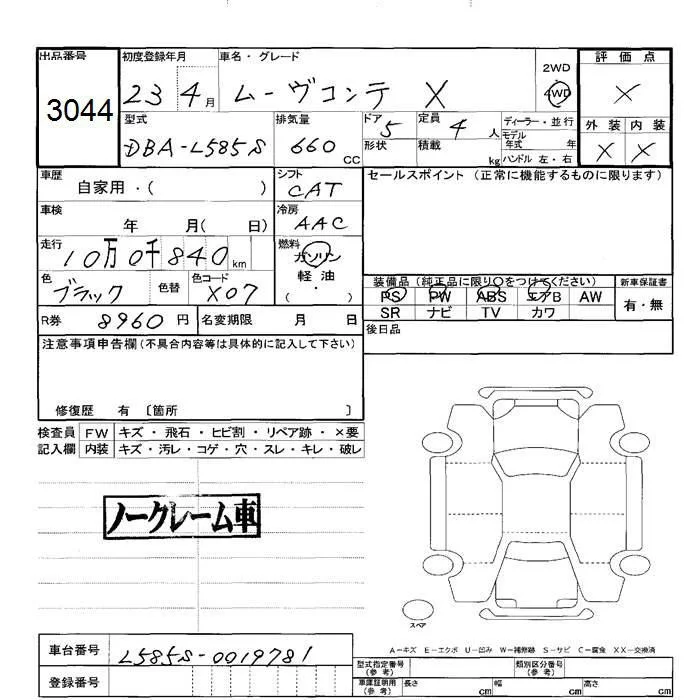 出品番号 初度登録年月 車名・グレード 2WD 評価点
3044 23 4月 ムーヴコンテ X 4WD X
型式 排気量 ドア 5 定員 4人 ディーラー・並行 外装 内装
DBA-L585S 660 CC 形状 積載 kg モデル年式 年 X X
ハンドル 左・右
車歴 自家用・( ) シフト CAT セールスポイント(正常に機能するものに限ります)
車検 年 月( 日) 冷房 AAC
走行 10万0千840km 燃料 ガソリン 軽油 ( ・ )
色 ブラック 色替 色コード X07
装備品(純正品に限り○をつけてください) 新車保証書
PS PW ABS エアB AW 有・無
SR ナビ TV カワ
R券 8960円 名変期限 月 日 後日品
注意事項申告欄(不具合内容等は具体的に記入して下さい)
修復歴 有 〔箇所 〕
検査員 FW キズ・飛石・ヒビ割・リペア跡・×要
記入欄 内装 キズ・汚レ・コゲ・穴・スレ・キレ・破レ
ノークレーム車
スペア
A-キズ E-エクボ U-凹み W-補修跡 S-サビ C-腐食 XX-交換済
車台番号 L585S-0019781
型式指定番号(参考) 類別区分番号(参考)
登録番号
車庫証明用(参考) 長さ cm 幅 cm 高さ cm